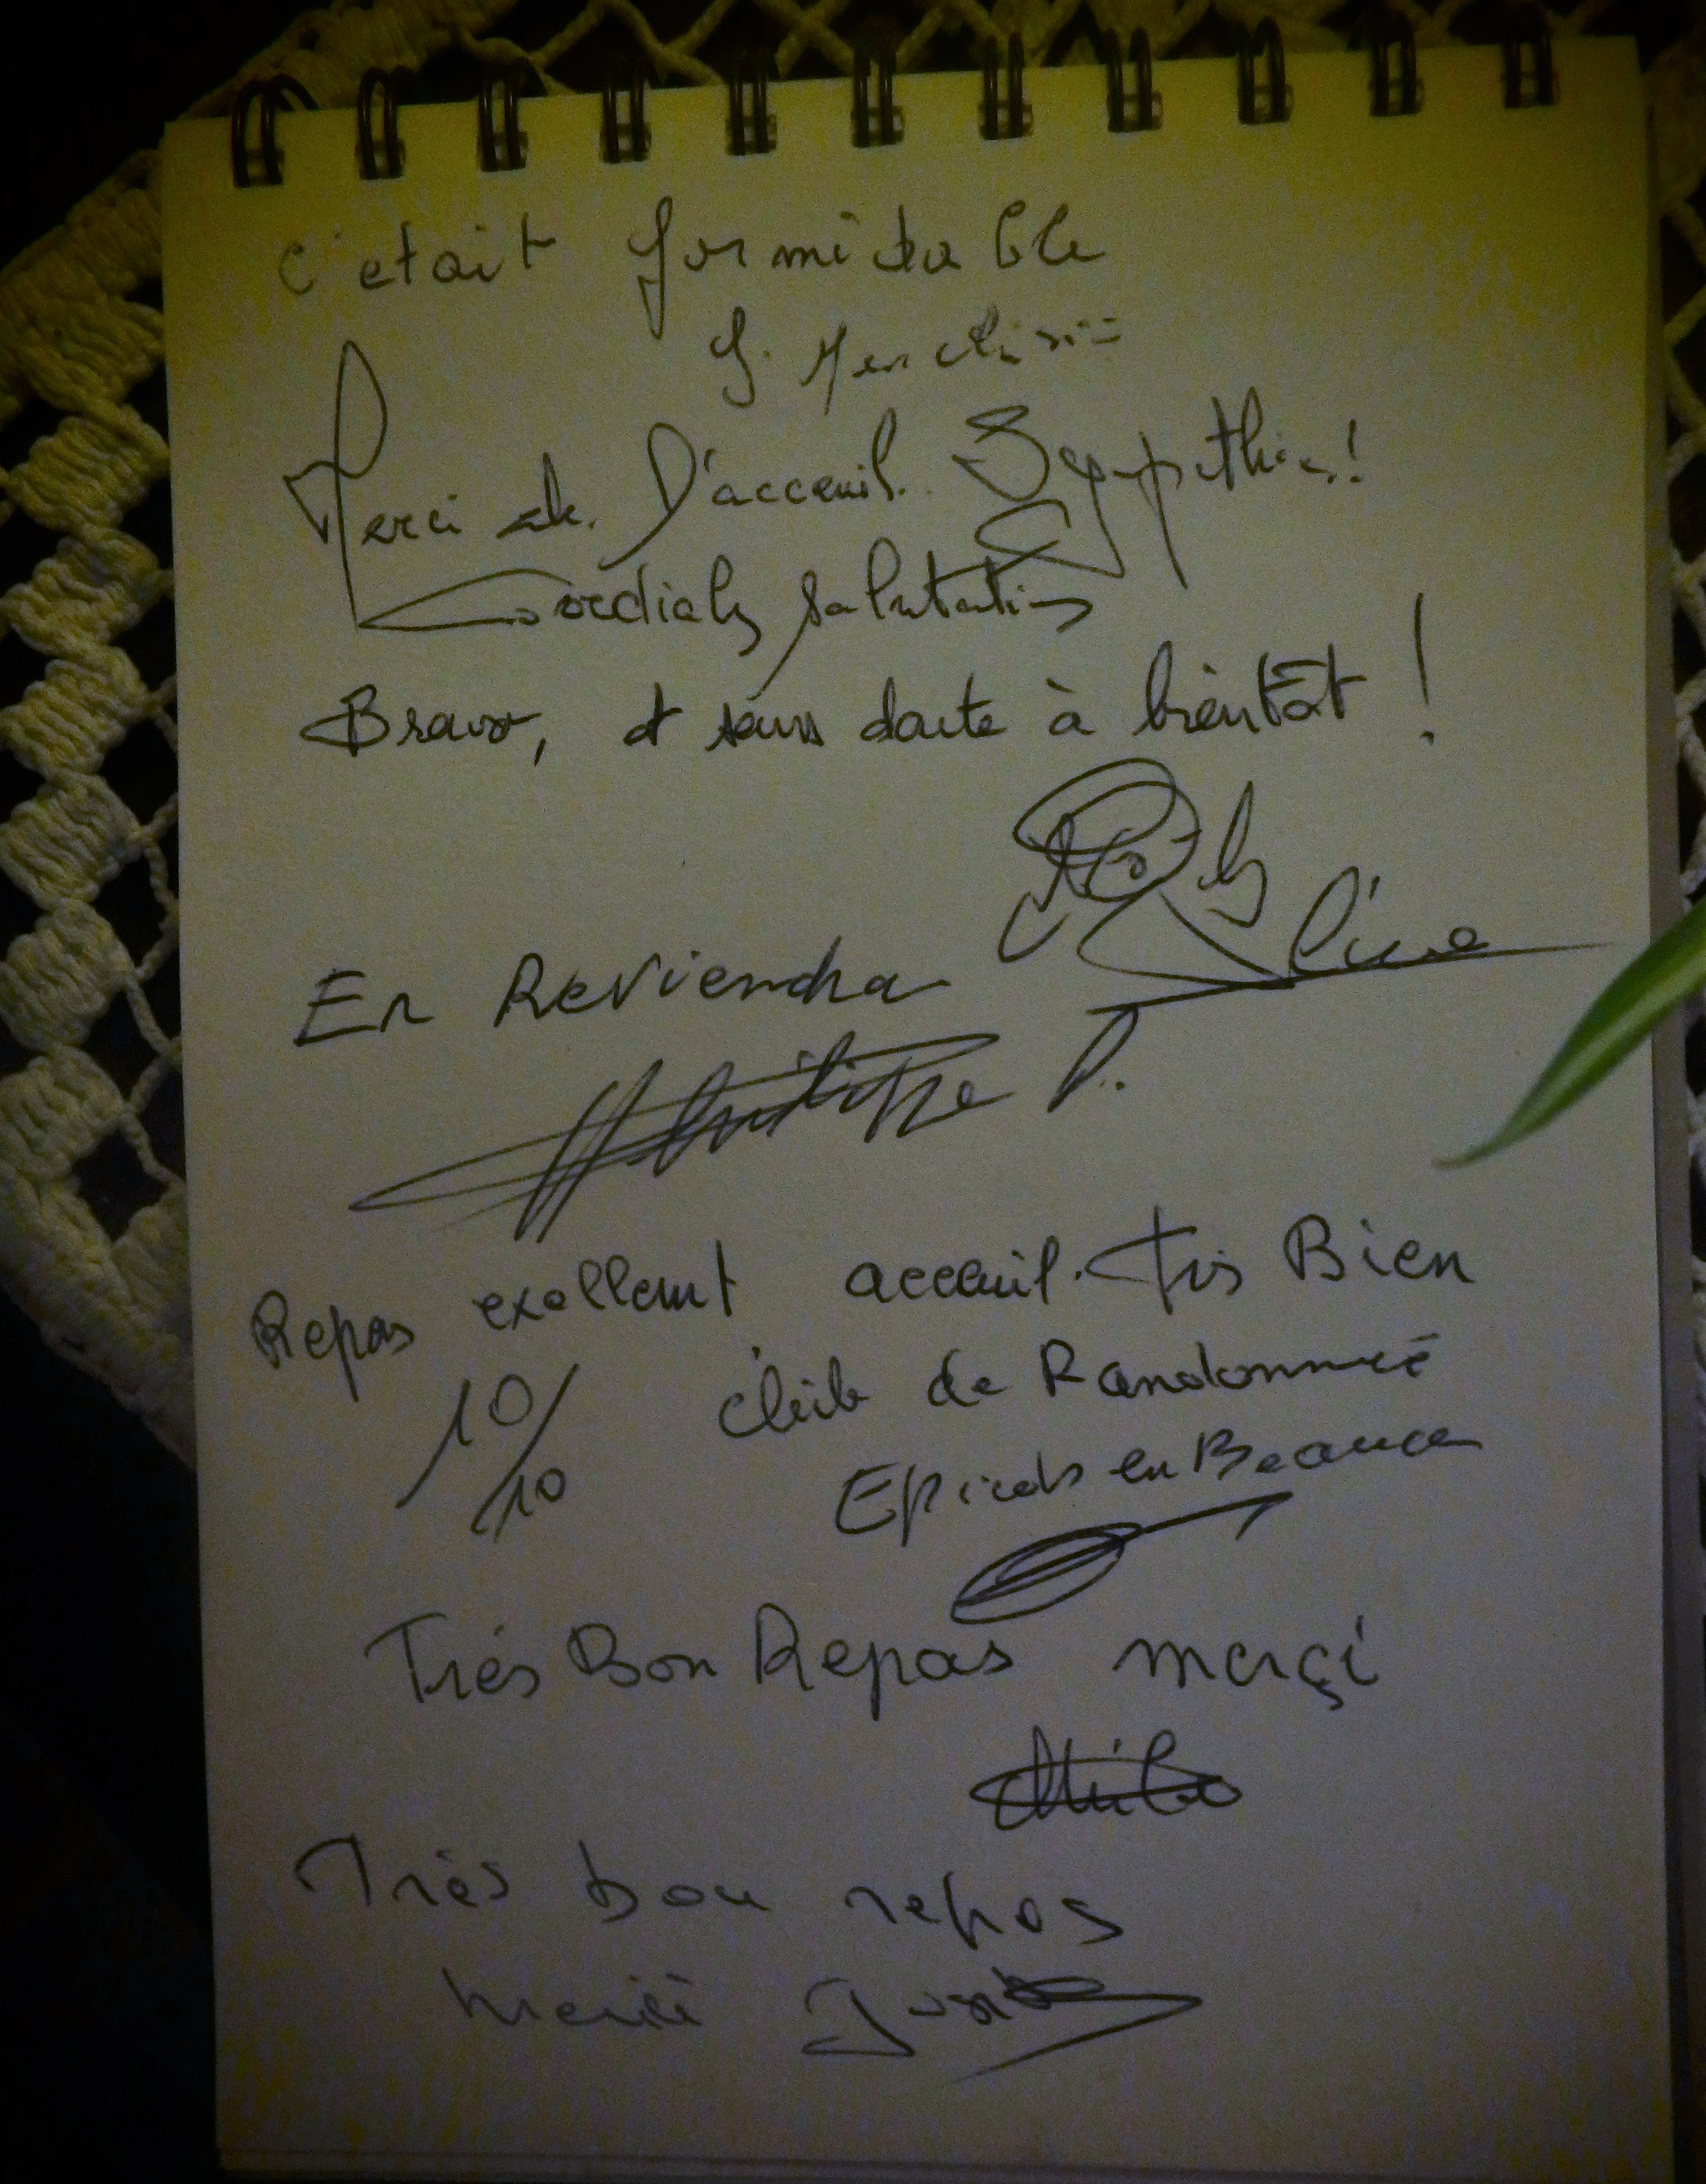 c'etait formidable
Merci de. D'acceuil. Sympathie.!
Cordiales salutations
Bravo, et sans doute à bientôt !
En Reviendra
Philippe P.
Repas exellent acceuil. Très Bien
10/10 club de Randonnée
Epieds en Beauce
Trés Bon Repas merçi
Très bon repas
merci